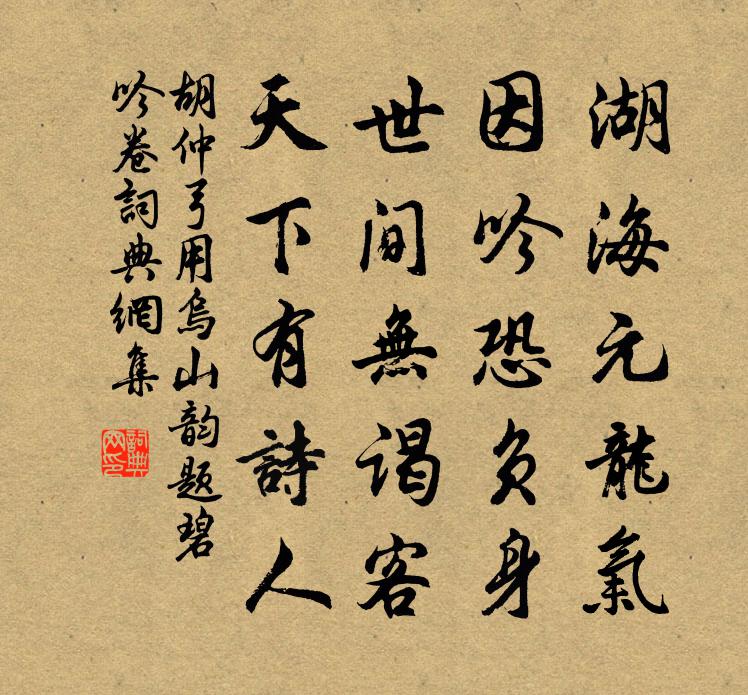 湖海元龍氣
因吟恐負身
世間無谒客
天下有詩人
胡仲弓用烏山韵题碧
吟卷詞典網集
詞典网印